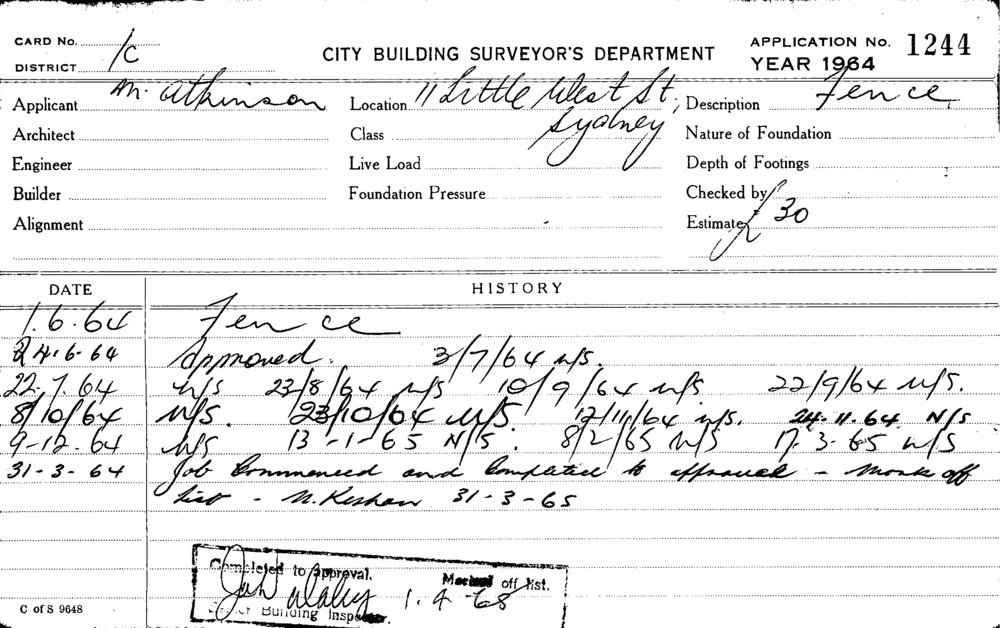 CARD No. 1c CITY BUILDING SURVEYOR'S DEPARTMENT APPLICATION No. 1244
DISTRICT YEAR 1964
Applicant M. Atkinson Location 11 Little West St, Description Fence
Architect Class Sydney Nature of Foundation
Engineer Live Load Depth of Footings
Builder Foundation Pressure Checked by
Alignment Estimate £30
DATE HISTORY
1.6.64 Fence
24.6.64 Approved. 3/7/64 n/s.
22.7.64 n/s 23/8/64 n/s 10/9/64 n/s 22/9/64 n/s.
8/10/64 n/s. 23/10/64 n/s. 12/11/64 n/s. 24.11.64 N/S
9-12.64 n/s 13-1-65 N/S. 8/2/65 N/S 17.3.65 n/s
31-3-64 Job Commenced and Completed to approval - Mark off
list - N. Keshan 31-3-65
Completed to approval. Marked off list.
1.4-65
Building Inspector.
C of S 9648